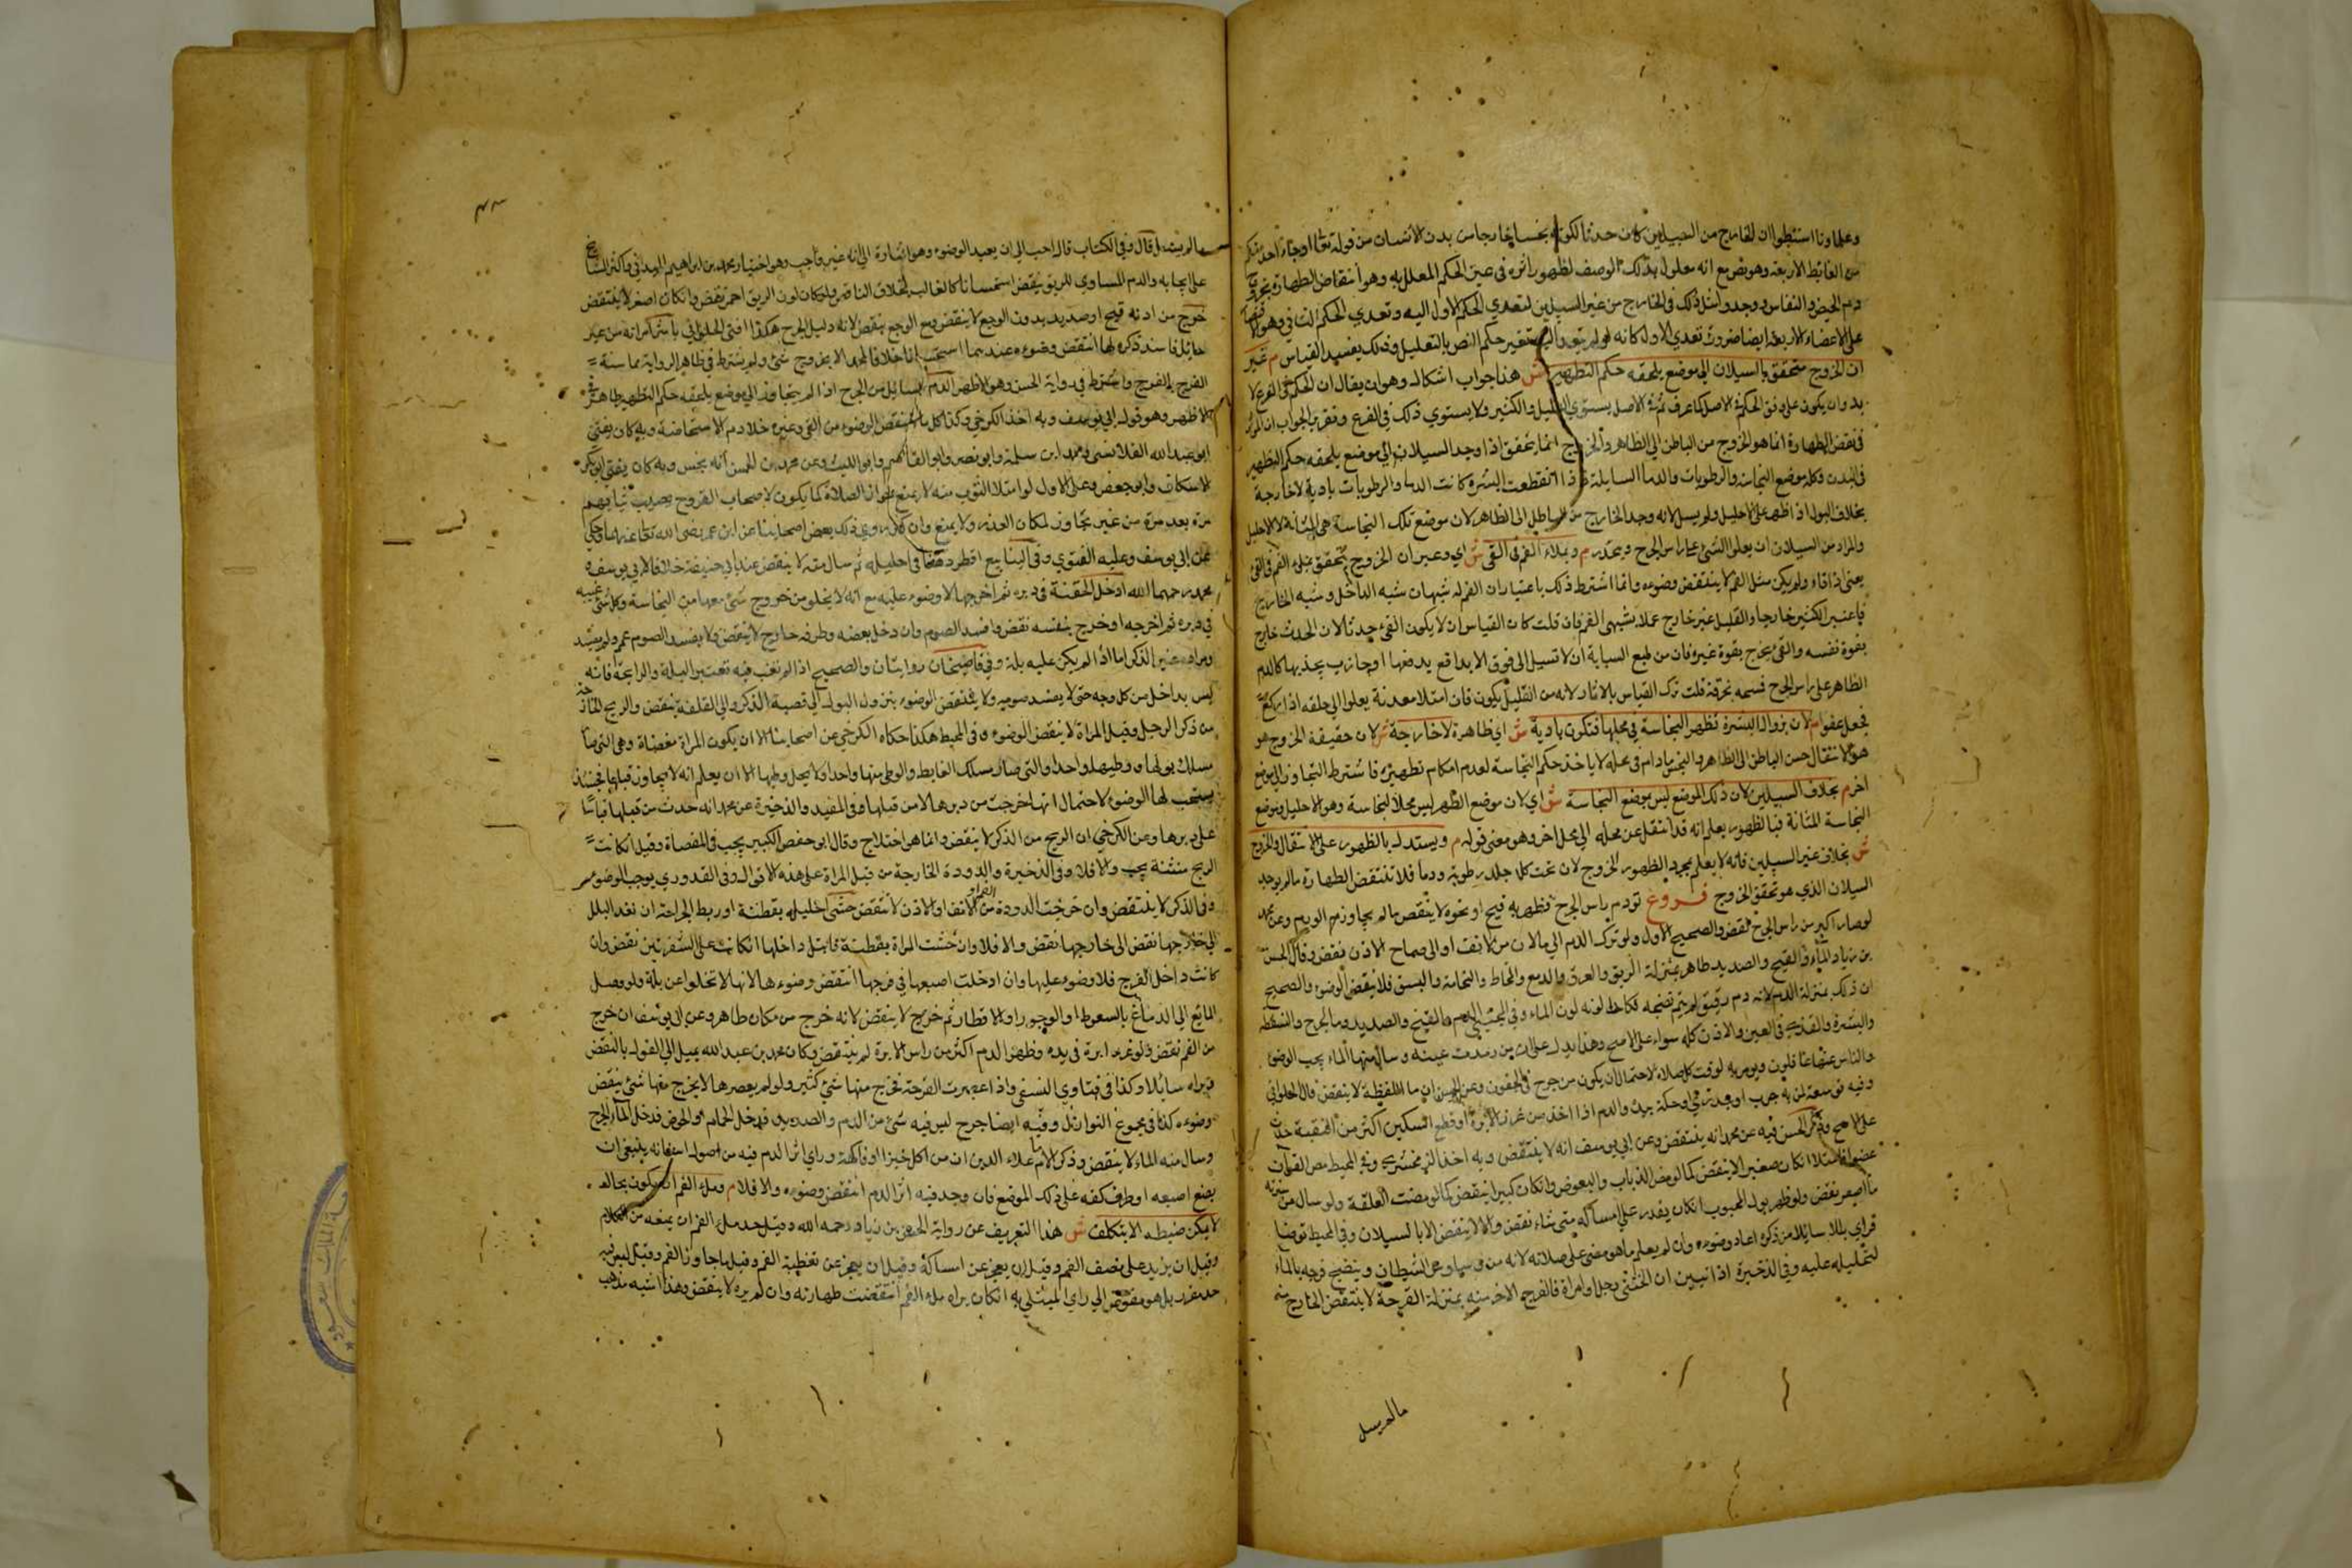 وعلماونا استنبطوا ان الخارج من السبيلين كان حدثا لكونه نجسا خارجا من بدن الانسان من قوله تعالى او جاء احد منكم
من الغائط الاربعة وهو نص مع انه معلول بذلك الوصف لظهور اثره في عين الحكم المعلل به وهو انتقاض الطهارة بخروج
دم الحيض والنفاس ووجدوا مثل ذلك في الخارج من غير السبيلين لتعدي الحكم الاول اليه وتعدي الحكم الثاني وهو
على الاعضاء الاربعة ايضا ضرورة تعدي الاول كانه لو لم يتعد تغير حكم النص بالتعليل وذلك يفسد القياس م غير
ان الخروج يتحقق بالسيلان الى موضع يلحقه حكم التطهير ش هذا جواب اشكال وهو ان يقال ان الحكم في الفرع لا
بد وان يكون على وفق الحكم في الاصل كما عرف ثم في الاصل يستوي القليل والكثير ولا يستوي ذلك في الفرع وتقرير الجواب ان المؤثر
في نقض الطهارة انما هو الخروج من الباطن الى الظاهر والخروج انما يتحقق اذا وجد السيلان الى موضع يلحقه حكم التطهير
في البدن وكله موضع النجاسة والرطوبات والدما السايلة فاذا انقطعت البشرة كانت الدما والرطوبات بادية لا خارجة
بخلاف البول اذا ظهر على الاحليل ولم يسل لانه وجد الخارج من الباطن الى الظاهر لان موضع تلك النجاسة هي المثانة لا الاحليل
والمراد من السيلان ان يعلوا الشئ على راس الجرح وينحدر م وبملاء الفم في القئ ش اي وغير ان الخروج يتحقق بملء الفم في القئ
يعني اذا قاء ولم يكن مثل الفم لا ينتقض وضوءه وانما اشترط ذلك باعتبار ان الفم له شبهان شبه الداخل وشبه الخارج
فاعتبر الكثير خارجا والقليل غير خارج عملا بشبهي الفم فان قلت كان القياس ان لا يكون القئ حدثا لان الحدث خارج
بقوة نفسه والقئ يخرج بقوة غيره فان من طبع السيالة ان لا تسيل الى فوق الا بدافع يدفعها او جاذب يجذبها كالدم
الظاهر على راس الجرح فمسحه بخرقة قلت ترك القياس بالاثار ولانه من القليل يكون فان امتلا معدنة يعلوا الى حلقه اذا ركع
فجعل عفوا م لان بزوال البشرة تظهر النجاسة في محلها فتكون بادية ش اي ظاهرة لا خارجة ش لان حقيقة الخروج هو
هو الانتقال من الباطن الى الظاهر والنجس ما دام في محله لا ياخذ حكم النجاسة لعدم امكان تطهيره فاشترط التجاوز الى موضع
اخر م بخلاف السبيلين لان ذلك الموضع ليس بموضع النجاسة ش اي لان موضع الظهر ليس محلا لنجاسة وهو الاحليل وموضع
النجاسة المثانة فبالظهور يعلم انه قد انتقل عن محله الى محل اخر وهو معنى قوله م ويستدل بالظهور على الانتقال والخروج
ش بخلاف غير السبيلين فانه لا يعلم بمجرد الظهور الخروج لان تحت كل جلد رطوبة ودما فلا تنتقض الطهارة ما لم يوجد
السيلان الذي هو تحقق الخروج فروع تورم راس الجرح فظهر به قيح او نحوه لا ينقض ما لم يجاوز الورم وعن محمد
لو صار اكبر من راس الجرح نقض والصحيح الاول ولو نزل الدم الى ما لان من الانف او الى صماخ الاذن نقض وقال الحسن
بن زياد الماء والقيح والصديد طاهر بمنزلة الريق والعرق والدمع والمخاط والنخامة والبسق فلا ينقض الوضوء والصحيح
ان ذلك بمنزلة الدم لانه دم رقيق لم يتم نضجه فكان لونه لون الماء وفي المجتبى الدم والقيح والصديد وماء الجرح والنفطة
والبشرة والثدي في العين والاذن كله سواء على الاصح وهذا يدل على ان من رمدت عينه وسال منها الماء يجب الوضوء
والناس عنها غافلون ويومر به لوقت كل صلاة لاحتمال ان يكون من جرح في الجفون وعن الحسن ان ماء النفطة لا ينقض قال الحلواني
وفيه توسعة لمن به جرب او جدري او حكة برئ والدم اذا اخذ من غرز الابرة او قطع السكين اكثر من النقبة حدث
على الاصح وذكر الحسن فيه عن محمد انه ينتقض وعن ابي يوسف انه لا ينتقض وبه اخذ الزمخشري وفي المحيط مص القراد
عضوا فامتلا ان كان صغيرا لا ينقض كما لو مص الذباب والبعوض وان كان كبيرا ينقض كما لو مصت العلقة ولو سال من سرته
ماء اصفر نقض ولو ظهر بول المجبوب ان كان يقدر على امساكه متى شاء نقض والا لا ينقض الا بالسيلان وفي المحيط توضا
فراي بللا سائلا من ذكره اعاد وضوءه وان لم يعلم ما هو مضى على صلاته لانه من وساوس الشيطان وينضح فرجه بالماء
لتحليله عليه وفي الذخيرة اذا تبين ان الخنثى رجل او امراة فالفرج الاخر منه بمنزلة القرحة لا ينتقض الخارج منه
ما لم يسل
ما لم يسل قال وفي الكتاب قال احب الي ان يعيد الوضوء وهو اشارة الى انه غير واجب وهو اختيار محمد بن ابراهيم الميداني واكثر المشايخ
على ايجابه والدم المساوي للريق ينقض استحسانا كالغالب بخلاف الناقص ولو كان لون الريق احمر نقض وان كان اصفر لا ينتقض
خرج من اذنه قيح او صديد بدون الوجع لا ينقض ومع الوجع ينقض لانه دليل الجرح هكذا افتى الحلواني باشر امراته من غير
حائل فانتشر ذكره لها انتقض وضوءه عندهما استحسانا خلافا لمحمد الا بخروج شئ ولم يشترط في ظاهر الرواية مماسة
الفرج بالفرج واشترط في رواية الحسن وهو الاظهر الدم السائل من الجرح اذا لم يتجاوز الى موضع يلحقه حكم التطهير طاهر في
الاظهر وهو قول ابي يوسف وبه اخذ الكرخي وكذا كل ما لا ينقض الوضوء من القئ وغيره خلا دم الاستحاضة وبه كان يفتي
ابو عبد الله القلانسي ومحمد ابن سلمة وابو نصر وابو القاسم وابو الليث وعن محمد بن الحسن انه نجس وبه كان يفتي ابو بكر
الاسكاف وابو جعفر وعلى الاول لو امتلا الثوب منه لا يمنع جواز الصلاة كما يكون لاصحاب القروح يصيب ثيابهم
مرة بعد مرة من غير تجاوز لمكان العذر ولا يمنع وان كثر روي ذلك بعض اصحابنا عن ابن عمر رضي الله تعالى عنهما وحكي
عن ابي يوسف وعليه الفتوى وفي الينابيع اقطر دهنا في احليله ثم سال منه لا ينقض عند ابي حنيفة خلافا لابي يوسف
ومحمد رحمهما الله ادخل الحقنة في دبره ثم اخرجها لا وضوء عليه مع انه لا يخلو من خروج شئ معها من النجاسة وكل شئ غيبه
في دبره ثم اخرجه او خرج بنفسه نقض وافسد الصوم وان دخل بعضه وطرفه خارج لا ينقض ولا يفسد الصوم
ومراده غير الذكر اما اذا لم يكن عليه بلة وفي قاضيخان روايتان والصحيح اذا لم تغب فيه تعتبر البلة والرائحة فانه
ليس بداخل من كل وجه حتى لا يفسد صومه ولا ينتقض الوضوء بنزول البول الى قصبة الذكر والى القلفة ينقض والريح
من ذكر الرجل وقبل المراة لا ينقض الوضوء وفي المحيط هكذا حكاه الكرخي عن اصحابنا الا ان يكون المراة مفضاة وهي التي صار
مسلك بولها ووطيها واحدا والتي صار مسلك الغائط والوطئ منها واحدا ولا يحل وطيها الا ان يعلم انه لا يجاوز قبلها فحينئذ
يستحب لها الوضوء لاحتمال انها خرجت من دبرها لا من قبلها وفي المفيد والذخيرة عن محمد انه حدث من قبلها قياسا
على دبرها وعن الكرخي ان الريح من الذكر لا ينقض وانما هو اختلاج وقال ابو حفص الكبير يجب في المفضاة وقيل ان كانت
الريح منتنة يجب والا فلا وفي الذخيرة والدودة الخارجة من قبل المراة على هذه الاقوال وفي القدوري يوجب الوضوء
وفي الذكر لا ينتقض وان خرجت الدودة من الفم او الانف او الاذن لا تنقض حشى احليله بقطنة او ربط الجراحة ان نفذ البلل
الى خارجها نقض والا فلا وان حشت المراة بقطنة فابتل داخلها ان كانت على الشفرتين نقض وان
كانت داخل الفرج فلا وضوء عليها وان ادخلت اصبعها في فرجها انتقض وضوءها لانها لا تخلوا عن بلة ولو وصل
المائع الى الدماغ بالسعوط او الوجور او الاقطار ثم خرج لا ينقض لانه خرج من مكان طاهر وعن ابي يوسف ان خرج
من الفم نقض ولو غرز ابرة في يده وظهر الدم اكثر من راس الابرة لم ينتقض وكان محمد بن عبد الله يميل الى القول بالنقض
ويراه سائلا وكذا في فتاوي النسفي واذا عصرت القرحة فخرج منها شئ كثير ولو لم يعصرها لا يخرج منها شئ ينقض
وضوءه كذا في مجموع النوازل وفيه ايضا جرح ليس فيه شئ من الدم والصديد فدخل الحمام او الحوض فدخل الماء الجرح
وسال منه الماء لا ينقض وذكر الامام علاء الدين ان من اكل خبزا او فاكهة وراي اثر الدم فيه من اصول اسنانه ينبغي ان
يضع اصبعه او طرف كفه على ذلك الموضع فان وجد فيه اثر الدم انتقض وضوءه والا فلا م وملء الفم ان يكون بحال
لا يمكن ضبطه الا بتكلف ش هذا التعريف عن رواية الحسن بن زياد رحمه الله وقيل حد ملء الفم ان يمنعه من الكلام
وقيل ان يزيد على نصف الفم وقيل ان يعجز عن امساكه وقيل ان يعجز عن تغطية الفم وقيل ما جاوز الفم وقيل ليس فيه
حد مقدر بل هو مفوض الى راي المبتلى به ان كان يراه ملء الفم انتقضت طهارته وان لم يره لا ينقض وهذا اشبه مذهب